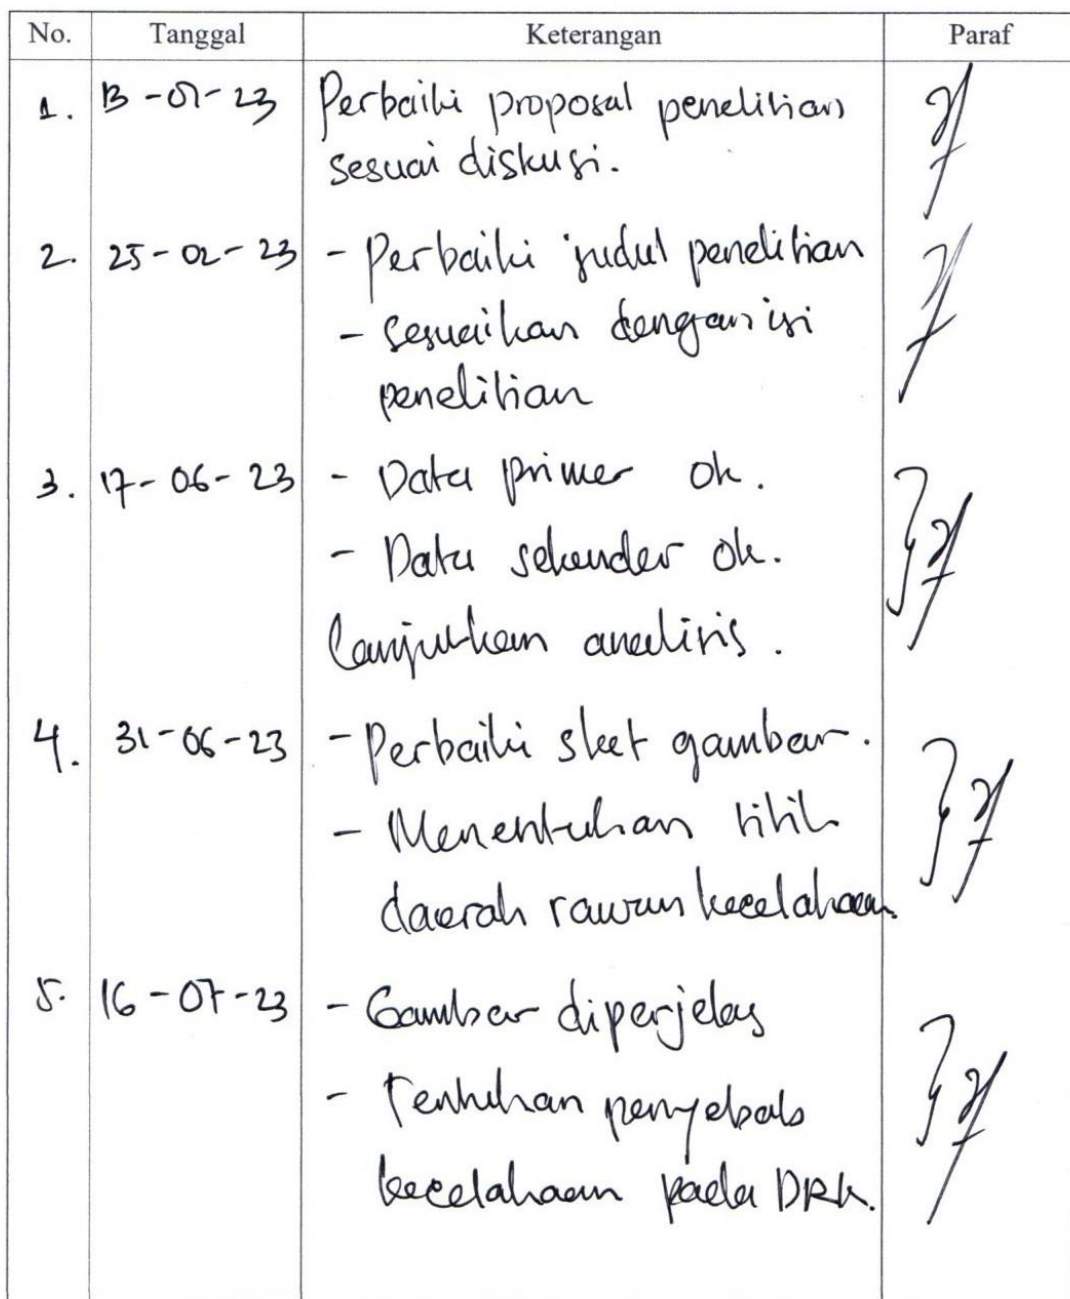 No. Tanggal Keterangan Paraf
1. 13-01-23 Perbaiki proposal penelitian
sesuai diskusi.
2. 25-02-23 - Perbaiki judul penelitian
- Sesuaikan dengan isi
penelitian
3. 17-06-23 - Data primer ok.
- Data sekunder ok.
Lanjutkan analisis.
4. 31-06-23 - Perbaiki sket gambar.
- Menentukan titik
daerah rawan kecelakaan.
5. 16-07-23 - Gambar diperjelas
- Tentukan penyebab
kecelakaan pada DRK.